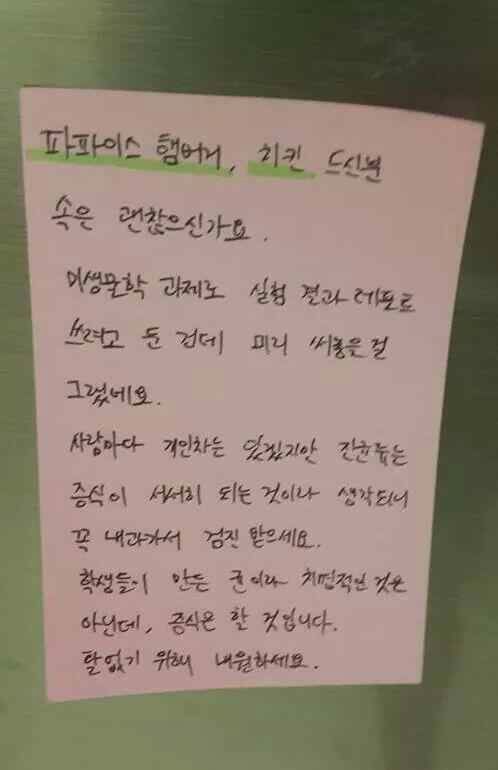 파파이스 햄버거, 치킨 드신분
속은 괜찮으신가요.
미생물학 과제로 실험 결과 레포트
쓰려고 둔 건데 미리 써놓은걸
그렇네요.
사람마다 개인차는 있겠지만 잔균류는
증식이 서서히 되는 것이라 생각되니
꼭 내과가서 검진 받으세요.
학생들이 만든 균이라 치명적인 것은
아닌데, 증식은 할 것입니다.
탈없기 위해 내원하세요.